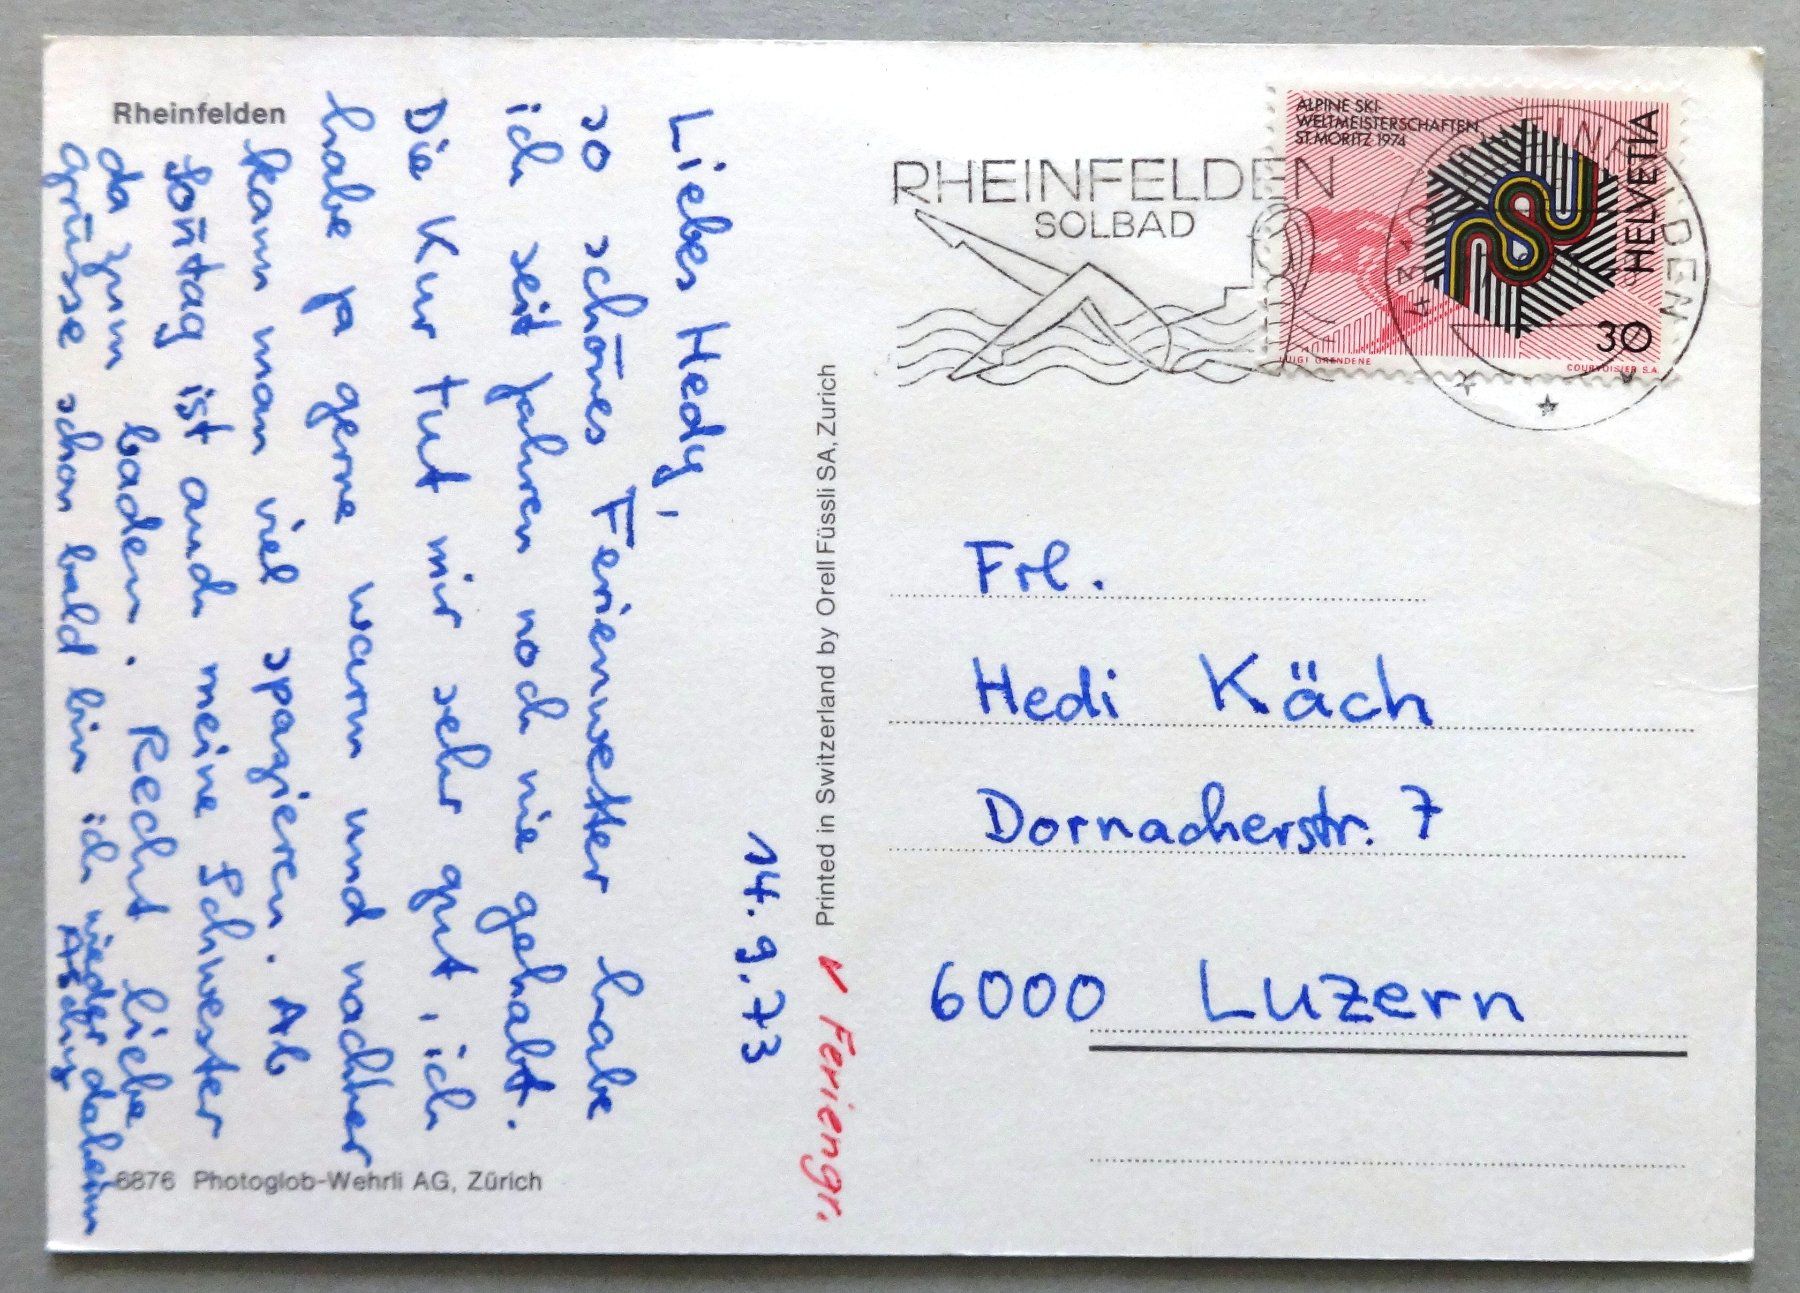 Rheinfelden
14.9.73
Liebes Hedy,
so schönes Ferienwetter habe
ich seit jahren noch nie gehabt.
Die Kur tut mir sehr gut, ich
habe ja gerne warm und nachher
kann man viel spazieren. Ab
Soñtag ist auch meine Schwester
da zum baden. Recht liebe
grüsse schon bald bin ich wieder daheim
6876 Photoglob-Wehrli AG, Zürich
Printed in Switzerland by Orell Füssli SA, Zurich
✓ Feriengr.
RHEINFELDEN
SOLBAD
ALPINE SKI-
WELTMEISTERSCHAFTEN
ST.MORITZ 1974
HELVETIA
30
LUIGI GRENDENE
COURVOISIER S.A.
Frl.
Hedi Käch
Dornacherstr. 7
6000 Luzern